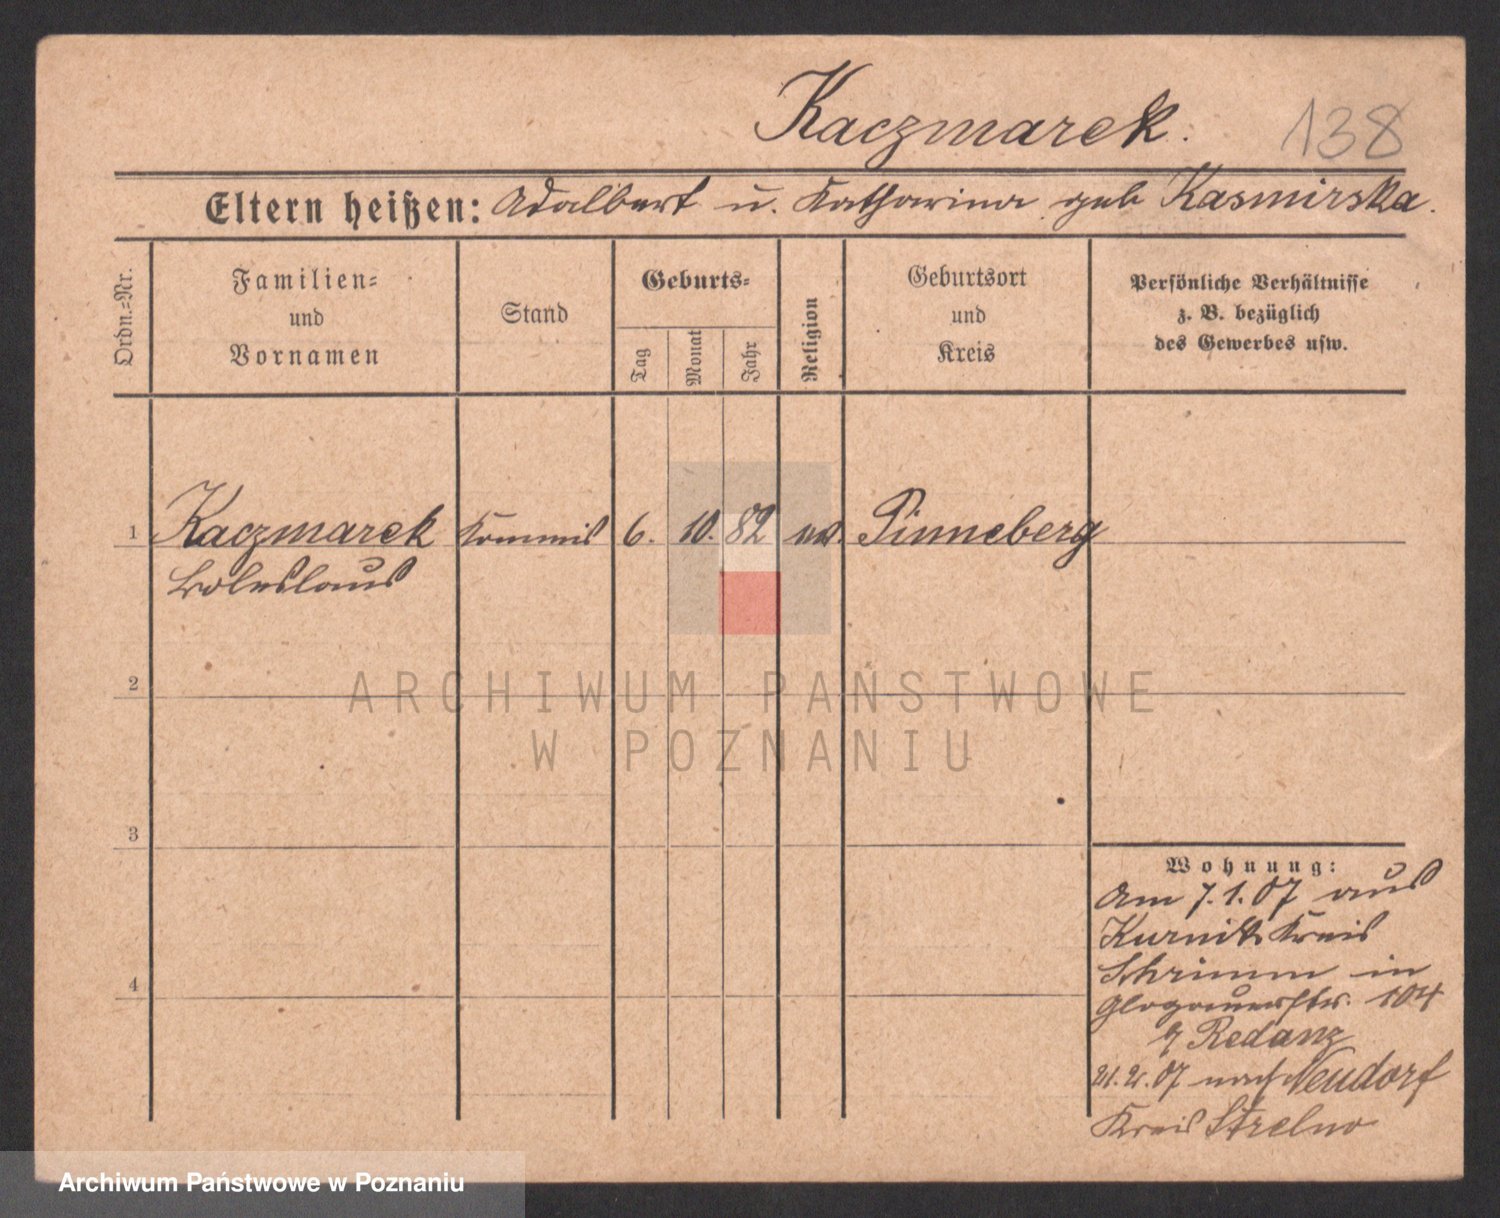 Kaczmarek. 138
Eltern heißen: Adalbert u. Katharina geb Kasmirska.
Ordn.-Nr.
Familien-
und
Vornamen
Stand
Geburts-
Tag
Monat
Jahr
Religion
Geburtsort
und
Kreis
Persönliche Verhältnisse
z. B. bezüglich
des Gewerbes usw.
1 Kaczmarek Kommis 6. 10. 82 Pinneberg
Boleslaus
2
ARCHIWUM PAŃSTWOWE
W POZNANIU
3
4
Wohnung:
Am 7.1.07 aus
Kurnik Kreis
Schrimm in
Glogauerstr. 104
Redanz
21.2.07 nach Neudorf
Kreis Strelno
Archiwum Państwowe w Poznaniu